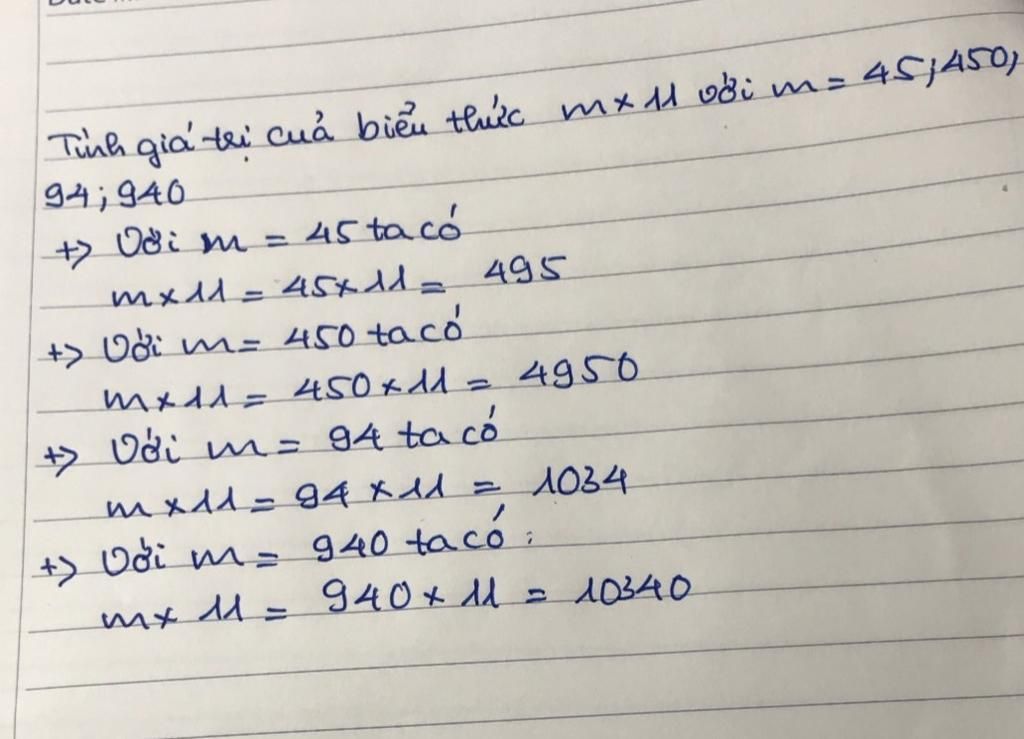 Tính giá trị của biểu thức m × 11 với m = 45; 450;
94; 940
+> Với m = 45 ta có
m × 11 = 45 × 11 = 495
+> Với m = 450 ta có
m × 11 = 450 × 11 = 4950
+> Với m = 94 ta có
m × 11 = 94 × 11 = 1034
+> Với m = 940 ta có :
m × 11 = 940 × 11 = 10340